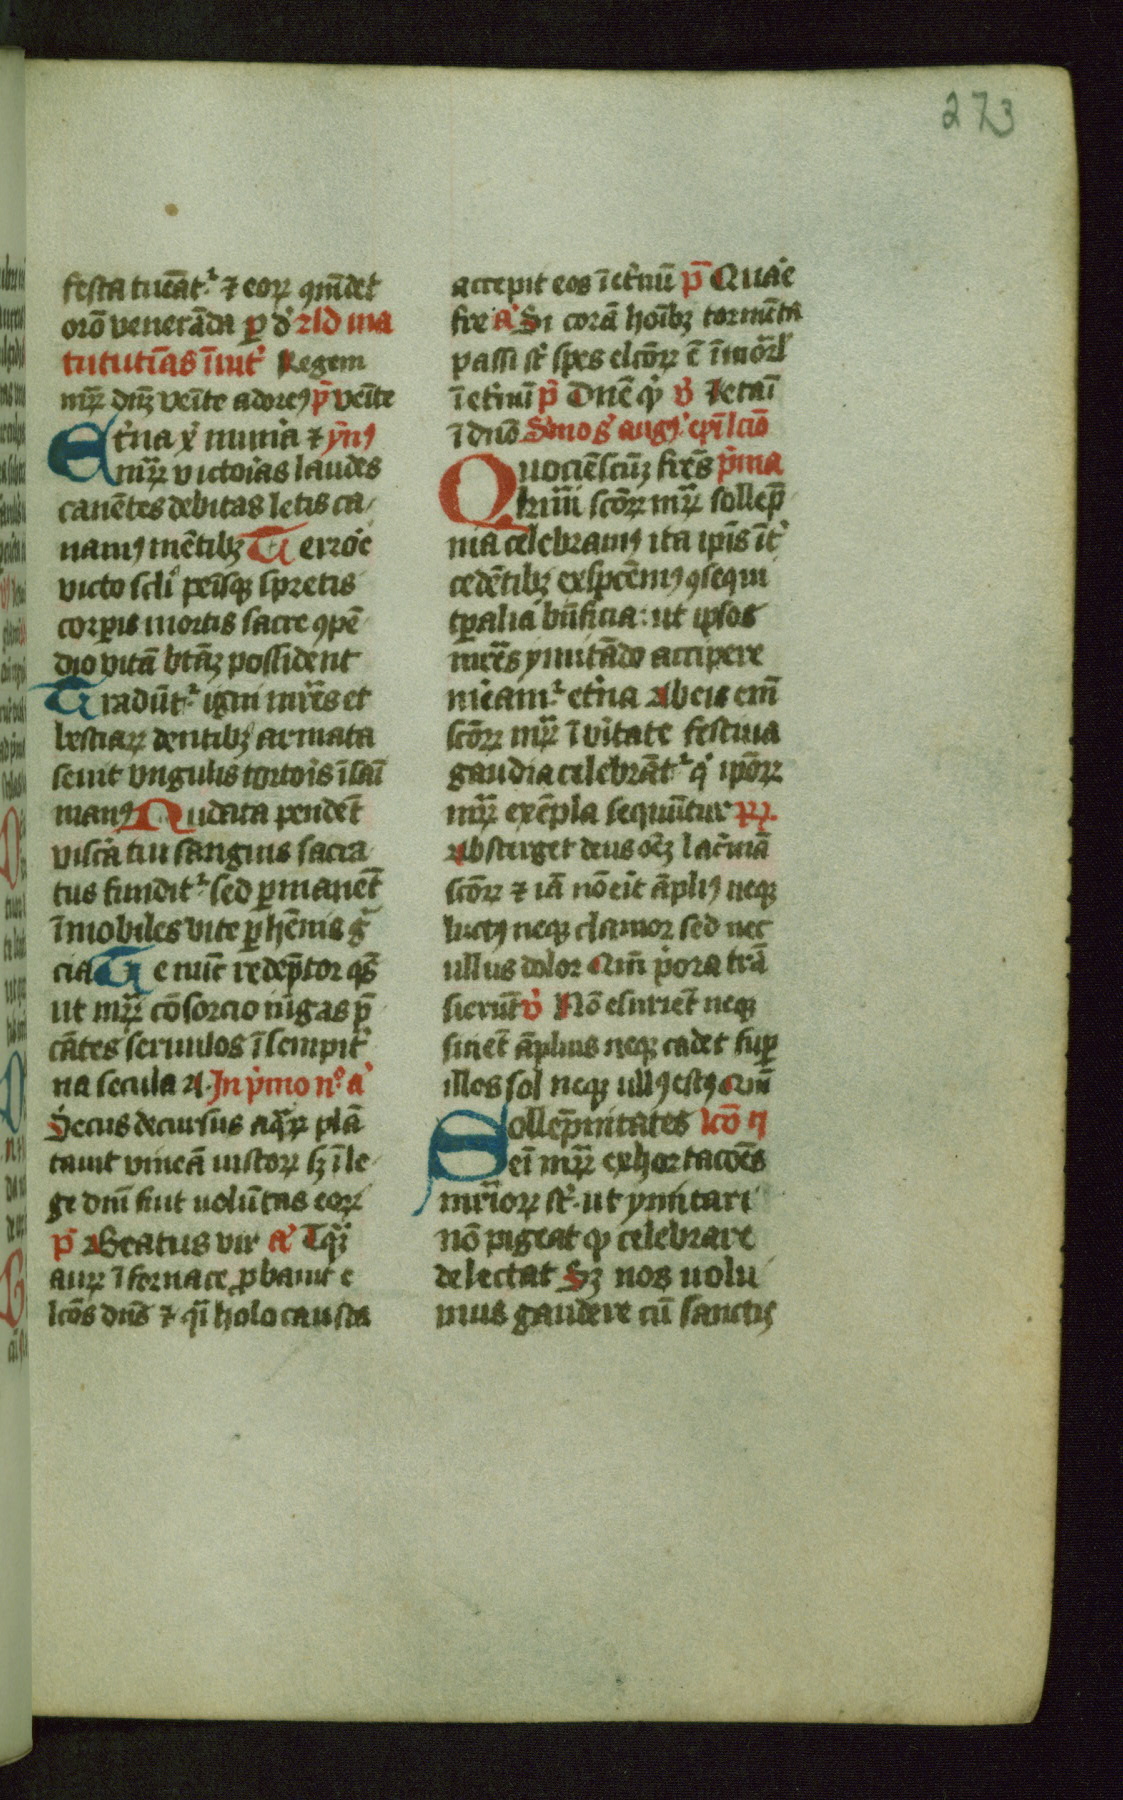 273
festa tueāt᷑ ⁊ eoꝝ ꝯm̄det
orō venerāda ꝑ d᷑ ꝛ ad ma
tutinas Īuit᷑ Regem
mr̄ꝝ dn̄ꝫ veīte adoreꝰ p̄ veīte
Et᷑na xp̄i munīa ⁊ ym̄ꝰ
mr̄ꝝ victorīas laudes
canētes debitas letis ca
namꝰ mētibꝫ Terrōe
victo scl̄i penisqꝫ spretis
corꝑis mortis sacre ꝯpē
dio vitā btāꝫ possident
Tradūt᷑ igni mr̄es et
bestiaꝝ dentibꝫ armata
seuit vngulis tortoīs īsāi
manꝰ Nudata pendēt
viscīa tiu sanguis sacra
tus fundit᷑ sed ꝑmanēt
īmobiles vite ꝑhēnis gr̄a
cia Te nūc redēptor qs̄
ut mr̄ꝝ cōsorcio iūgas p̄
cātes seruulos ī sempit᷑
na secula A In p̄mo n̊ a᷑
Secus decursus aq̄ꝝ plā
tauit vineā iustoꝝ sꝫ ī le
ge dn̄i fuit uolūtas eoꝝ
p̄ Beatus vir a᷑ Tq̄ꝫ
auꝝ ī fornace ꝓbauit e
lcōs dn̄s ⁊ q̄i holocausta
accepit eos ī et᷑nū p̄ Quaē
fre a᷑ Si corā hoībꝫ tormēta
passi st̄ spes elcōꝝ ē īmōrl
ī et᷑nū p̄ Dn̄e qͥ v᷑ Letāi
ī dn̄o Smo s᷑ augꝰ ep̄i lcio
Quociēscūꝫ fr̄es p̄ma
kr̄mi scōꝝ mr̄ꝝ sollep̄
nia celebramꝰ ita ip̄is īt᷑
cedētibꝫ exspcēmꝰ ꝯsequi
tp̄alia bn̄ficia: ut ipsos
mr̄es ymitādo accipere
mēam᷑ et᷑na Ab eis em̄
scōꝝ mr̄ꝝ ī v᷑itate festiua
gaudia celebrāt᷑ qͥ ip̄oꝝ
mr̄ꝝ exēpla sequūtur ꝶ
Absterget deus oēꝫ lac᷑mā
scōꝝ ⁊ iā nō eīt āpliꝰ neqꝫ
luctꝰ neqꝫ clamor sed nec
ullus dolor Qm̄ p᷑ora trā
sierūt v᷑ Nō esuriēt neqꝫ
sitiēt āplius neqꝫ cadet suꝑ
illos sol neqꝫ ullꝰ estꝰ Qm̄
Sollep̄nitates lcō ij
eī mr̄ꝝ exhortacōēs
mr̄ioꝝ st̄. ut ymitari
nō pigeat qͩ celebrare
delectat Sꝫ nos uolu
mus gaudere cū sanctis